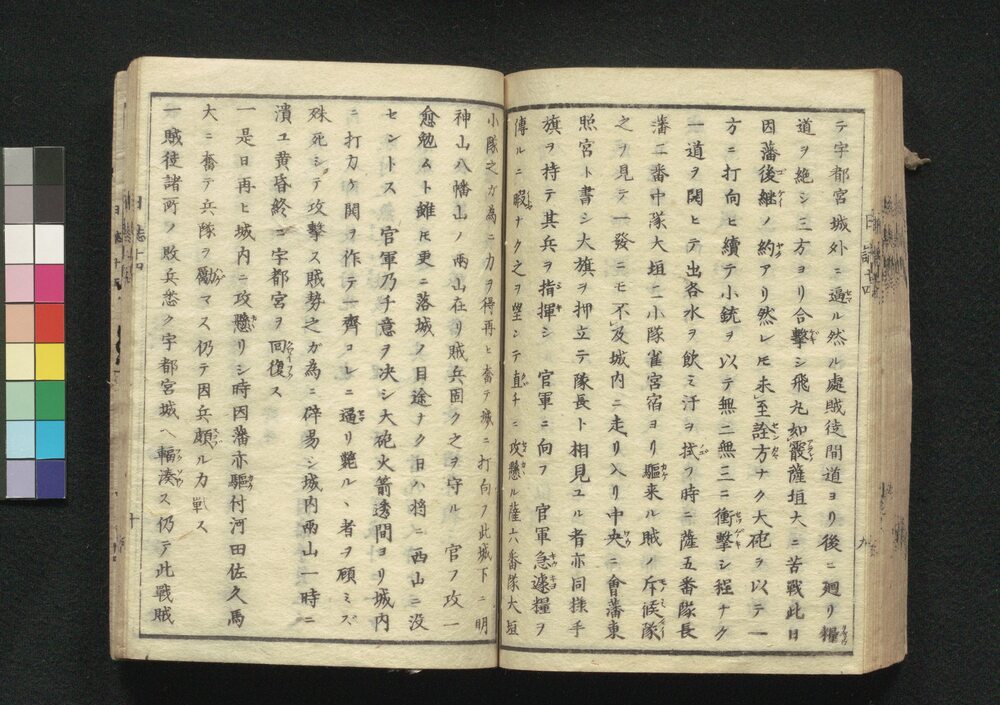 テ宇都宮城外ニ逼ル然ル處賊徒間道ヨリ後ニ廻リ糧
道ヲ絶シ三方ヨリ合撃シ飛丸如霰薩垣大ニ苦戦此日
因藩後継ノ約アリ然レ𪜈未至詮方ナク大砲ヲ以テ一
方ニ打向ヒ續テ小銃ヲ以テ無二無三ニ衝撃シ程ナク
一道ヲ開ヒテ出各水ヲ飲ミ汗ヲ拭フ時ニ薩五番隊長
藩二番中隊大垣二小隊雀宮宿ヨリ驅来ル賊ノ斥候隊
之ヲ見テ一發ニモ不及城内ニ走リ入リ中央ニ會藩東
照宮ト書シ大旗ヲ押立テ隊長ト相見ユル者亦同様手
旗ヲ持テ其兵ヲ指揮シ 官軍ニ向フ 官軍急遽糧ヲ
傳ルニ暇ナク之ヲ望シテ直チニ攻懸ル薩六番隊大垣
小隊之ガ為ニ力ヲ得再ヒ奮テ城ニ打向フ此城下ニ明
神山八幡山ノ兩山在リ賊兵固ク之ヲ守ル 官フ攻一
愈勉ムト雖𪜈更ニ落城ノ目途ナク日ハ将ニ西山ニ没
セントス 官軍乃チ意ヲ决シ大砲火箭透間ヨリ城内
ニ打カケ関ヲ作テ一齊コレニ逼リ斃ル、者ヲ顧ミズ
殊死シテ攻撃ス賊勢之ガ為ニ辟易シ城内兩山一時ニ
潰ユ黄昏終ニ宇都宮ヲ回復ス
一 是日再ヒ城内ニ攻懸リシ時因藩亦驅付河田佐久馬
大ニ奮テ兵隊ヲ勵マス仍テ因兵頗ル力戦ス
一 賊徒諸所ノ敗兵悉ク宇都宮城ヘ輻湊ス仍テ此戦賊